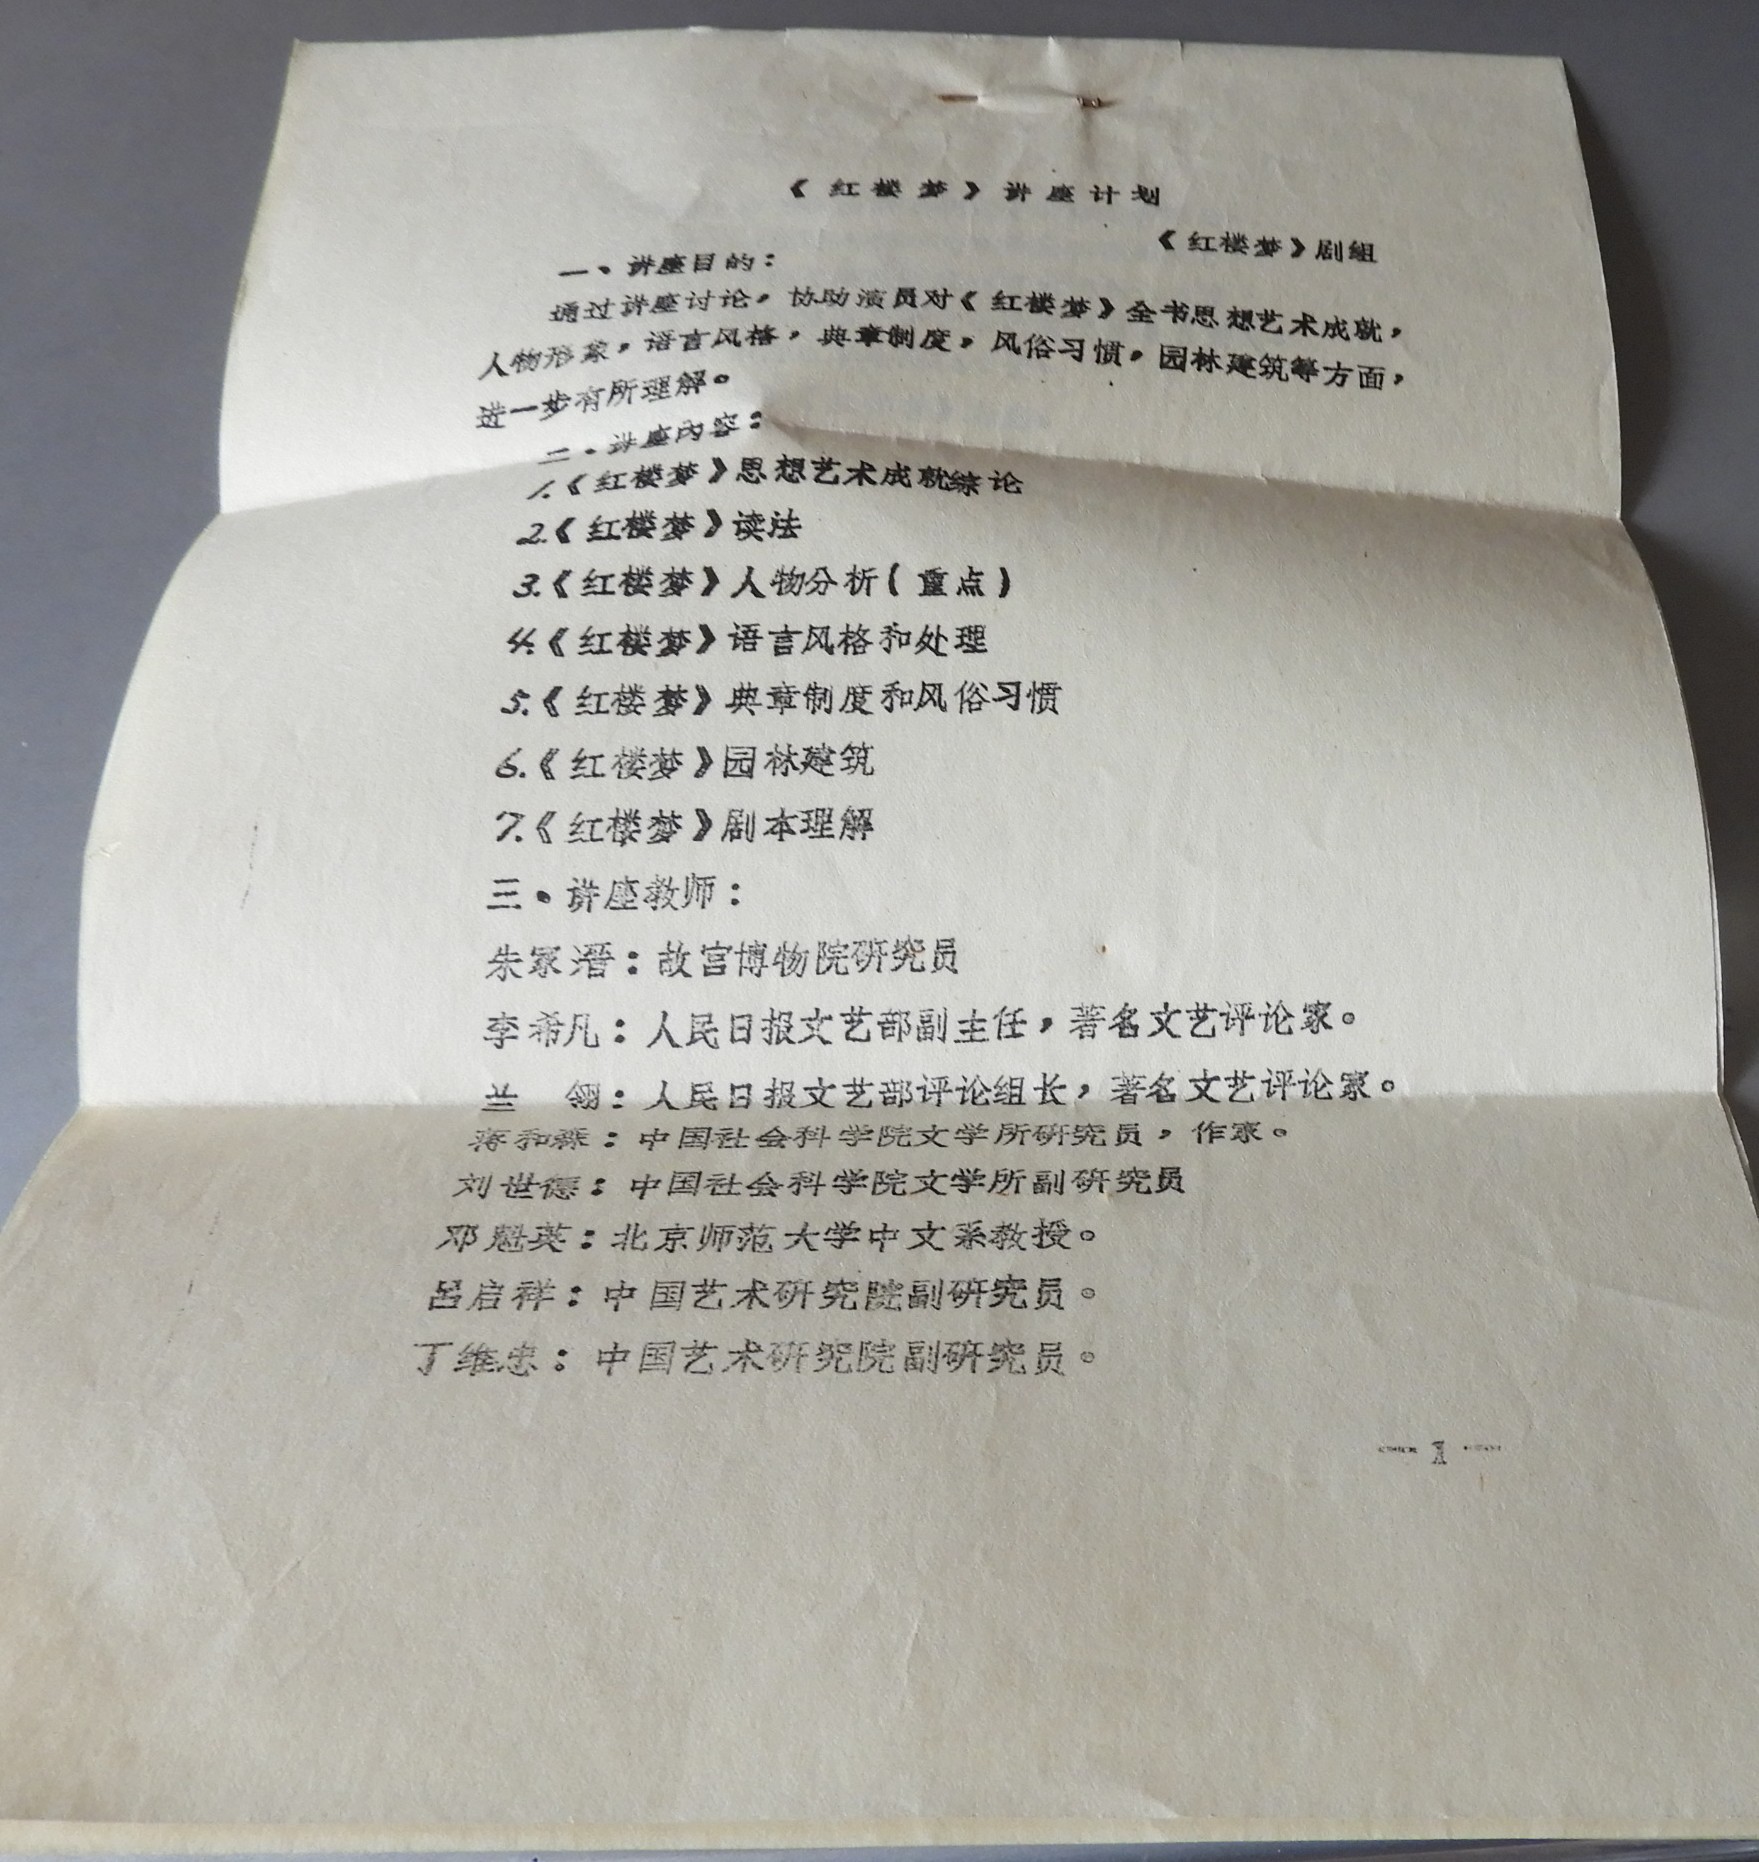 《红楼梦》讲座计划
《红楼梦》剧组
一·讲座目的：
通过讲座讨论，协助演员对《红楼梦》全书思想艺术成就，
人物形象，语言风格，典章制度，风俗习惯，园林建筑等方面，
进一步有所理解。
二·讲座内容：
1.《红楼梦》思想艺术成就综论
2.《红楼梦》读法
3.《红楼梦》人物分析（重点）
4.《红楼梦》语言风格和处理
5.《红楼梦》典章制度和风俗习惯
6.《红楼梦》园林建筑
7.《红楼梦》剧本理解
三·讲座教师：
朱家溍：故宫博物院研究员
李希凡：人民日报文艺部副主任，著名文艺评论家。
兰 翎：人民日报文艺部评论组长，著名文艺评论家。
蒋和森：中国社会科学院文学所研究员，作家。
刘世德：中国社会科学院文学所副研究员
邓魁英：北京师范大学中文系教授。
吕启祥：中国艺术研究院副研究员。
丁维忠：中国艺术研究院副研究员。
— 1 —